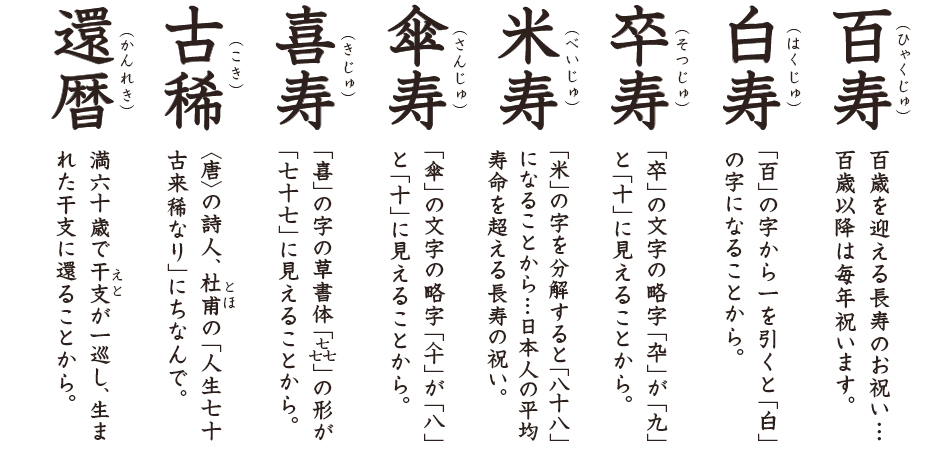 百寿
（ひゃくじゅ）
百歳を迎える長寿のお祝い…
百歳以降は毎年祝います。
白寿
（はくじゅ）
「百」の字から一を引くと「白」
の字になることから。
卒寿
（そつじゅ）
「卒」の文字の略字「卆」が「九」
と「十」に見えることから。
米寿
（べいじゅ）
「米」の字を分解すると「八十八」
になることから…日本人の平均
寿命を超える長寿の祝い。
傘寿
（さんじゅ）
「傘」の文字の略字「仐」が「八」
と「十」に見えることから。
喜寿
（きじゅ）
「喜」の字の草書体「㐂」の形が
「七十七」に見えることから。
古稀
（こき）
〈唐〉の詩人、杜甫の「人生七十
とほ
古来稀なり」にちなんで。
還暦
（かんれき）
満六十歳で干支が一巡し、生ま
えと
れた干支に還ることから。